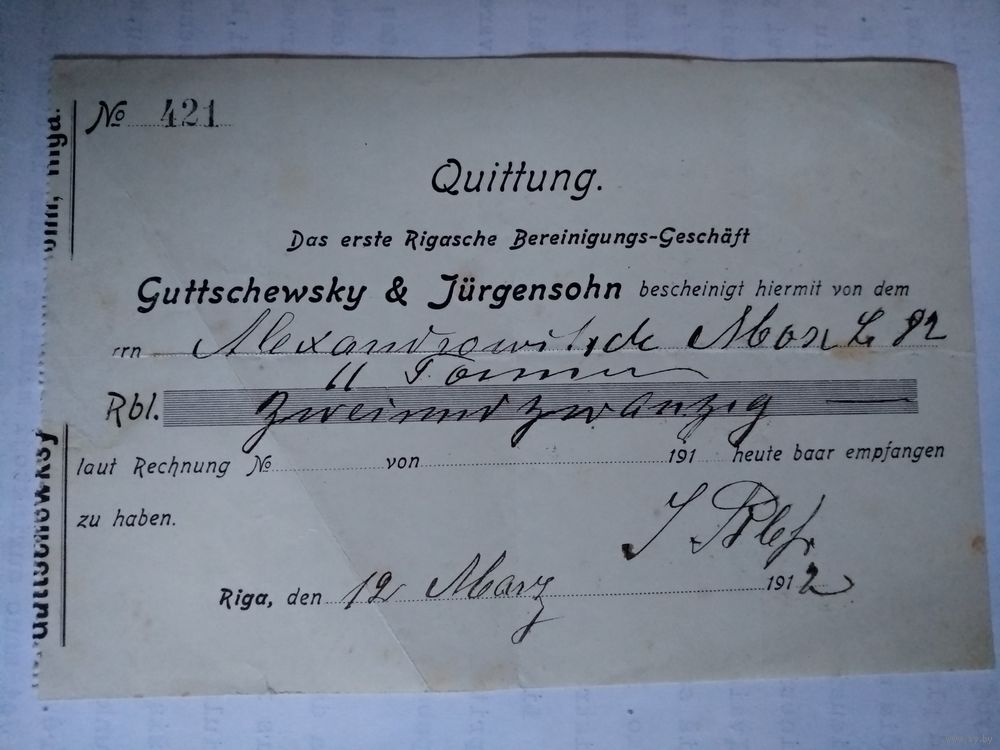 No 421
Quittung.
Das erste Rigasche Bereinigungs-Geschäft
Guttschewsky & Jürgensohn bescheinigt hiermit von dem
rrn
11 Tonnen
Rbl. Zweiundzwanzig
laut Rechnung No von 191 heute baar empfangen
zu haben.
Riga, den 12 März 1912
Guttschewsky